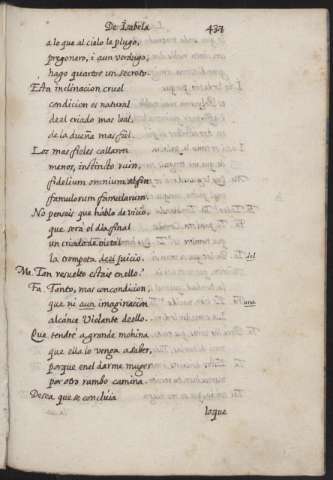 De Isabela
437
a lo que al cielo la plugo,
pregonero, i aun verdugo,
hago quartos un secreto.
Esta inclinacion cruel
condicion es natural
de el criado mas leal,
de la dueña mas fiel.
Los mas fieles callaron
menor, instinto ruin,
fidelium omnium al fin
famulorum famularum.
No penseis que habla de vicio,
que será el dia final
un criado de metal
la trompeta de el juicio. del
Me. Tan resuelto estais en ello?
Fa. Tanto, mas con condicion,
que ni aun imaginacion una
alcance Violante de ello.
Que tendré a grande mohina
que ella lo venga a saber,
porque en el darme muger
por otro rumbo camina.
Desea que se concluia
loque